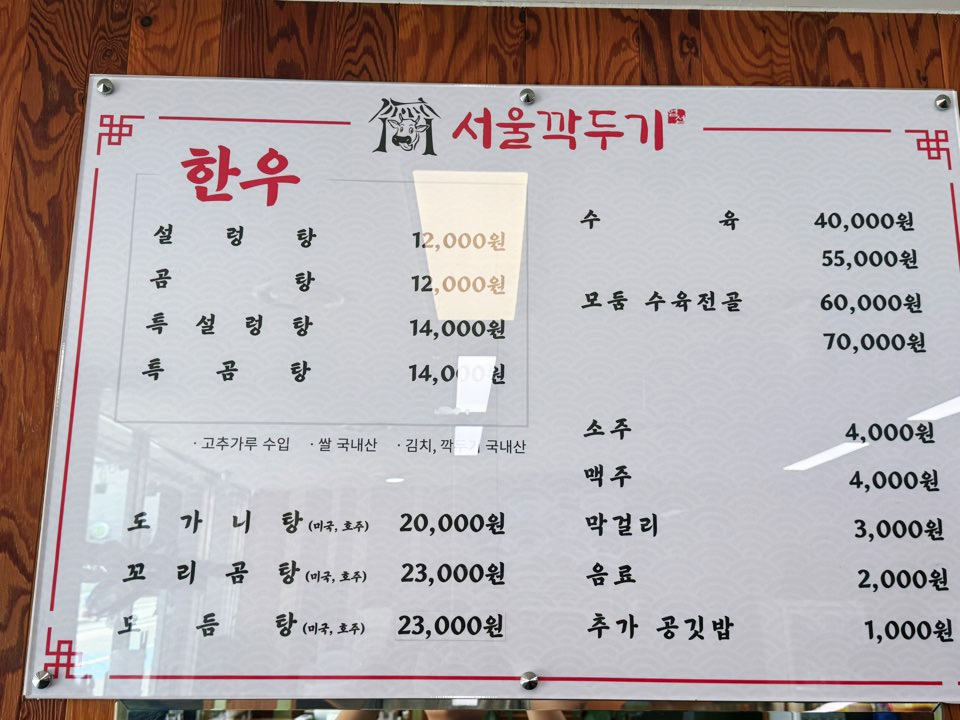 서울깍두기
한우
설렁탕 12,000원
곰탕 12,000원
특설렁탕 14,000원
특곰탕 14,000원
· 고추가루 수입 · 쌀 국내산 · 김치, 깍두기 국내산
도가니탕 (미국, 호주) 20,000원
꼬리곰탕 (미국, 호주) 23,000원
모듬탕 (미국, 호주) 23,000원
수육 40,000원
55,000원
모둠 수육전골 60,000원
70,000원
소주 4,000원
맥주 4,000원
막걸리 3,000원
음료 2,000원
추가 공깃밥 1,000원